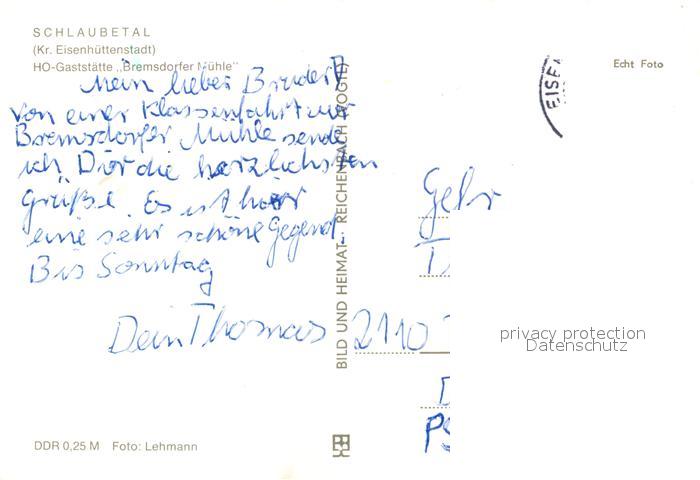 SCHLAUBETAL
(Kr. Eisenhüttenstadt)
HO-Gaststätte „Bremsdorfer Mühle"
Echt Foto
Mein lieber Bruder!
Von einer Klassenfahrt zur
Bremsdorfer Mühle sende
ich Dir die herzlichsten
Grüße. Es ist hier
eine sehr schöne Gegend.
Bis Sonntag
Dein Thomas
BILD UND HEIMAT REICHENBACH (VOGTL)
EISE
Gehr
2110
PS
privacy protection
Datenschutz
DDR 0,25 M Foto: Lehmann